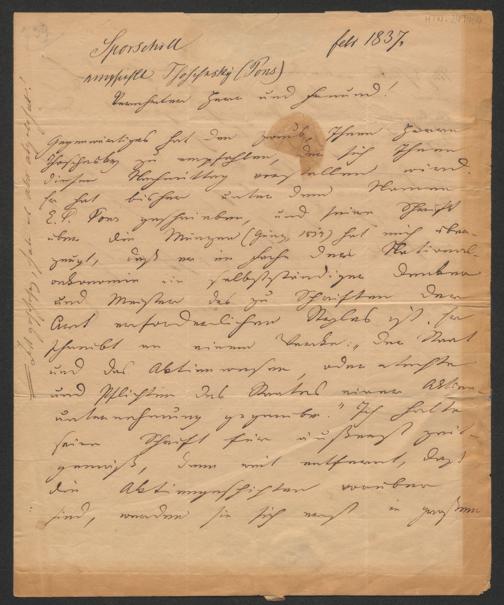 Sporschill
empfiehlt Thoschesky (Pons)
febr 1837.
Verehrter Herr und Freund!
Gegenwärtiges hat den Ihnen Herrn
Thoschesky zu empfehlen, der sich Ihnen
diesen Nachmittag vorstellen wird.
Er hat bisher unter dem Namen
E. S. Pons geschrieben, und seine Schrift
über die Münzen ( ) hat mich über-
zeugt, daß er im Fache der National-
oekonomie ein selbstständiger Denker
und Meister des zu Schriften der
Art erforderlichen Styles ist. Er
schreibt an einem Werke: „Der Staat
und das Aktienwesen, oder Rechte
und Pflichten des Staates einer Aktien-
unternehmung gegenüber." Ich halte
seine Schrift für äußerst zeit-
gemäß, denn weit entfernt, daß
die Aktiengeschichten vorüber
sind, werden sie sich erst in großem